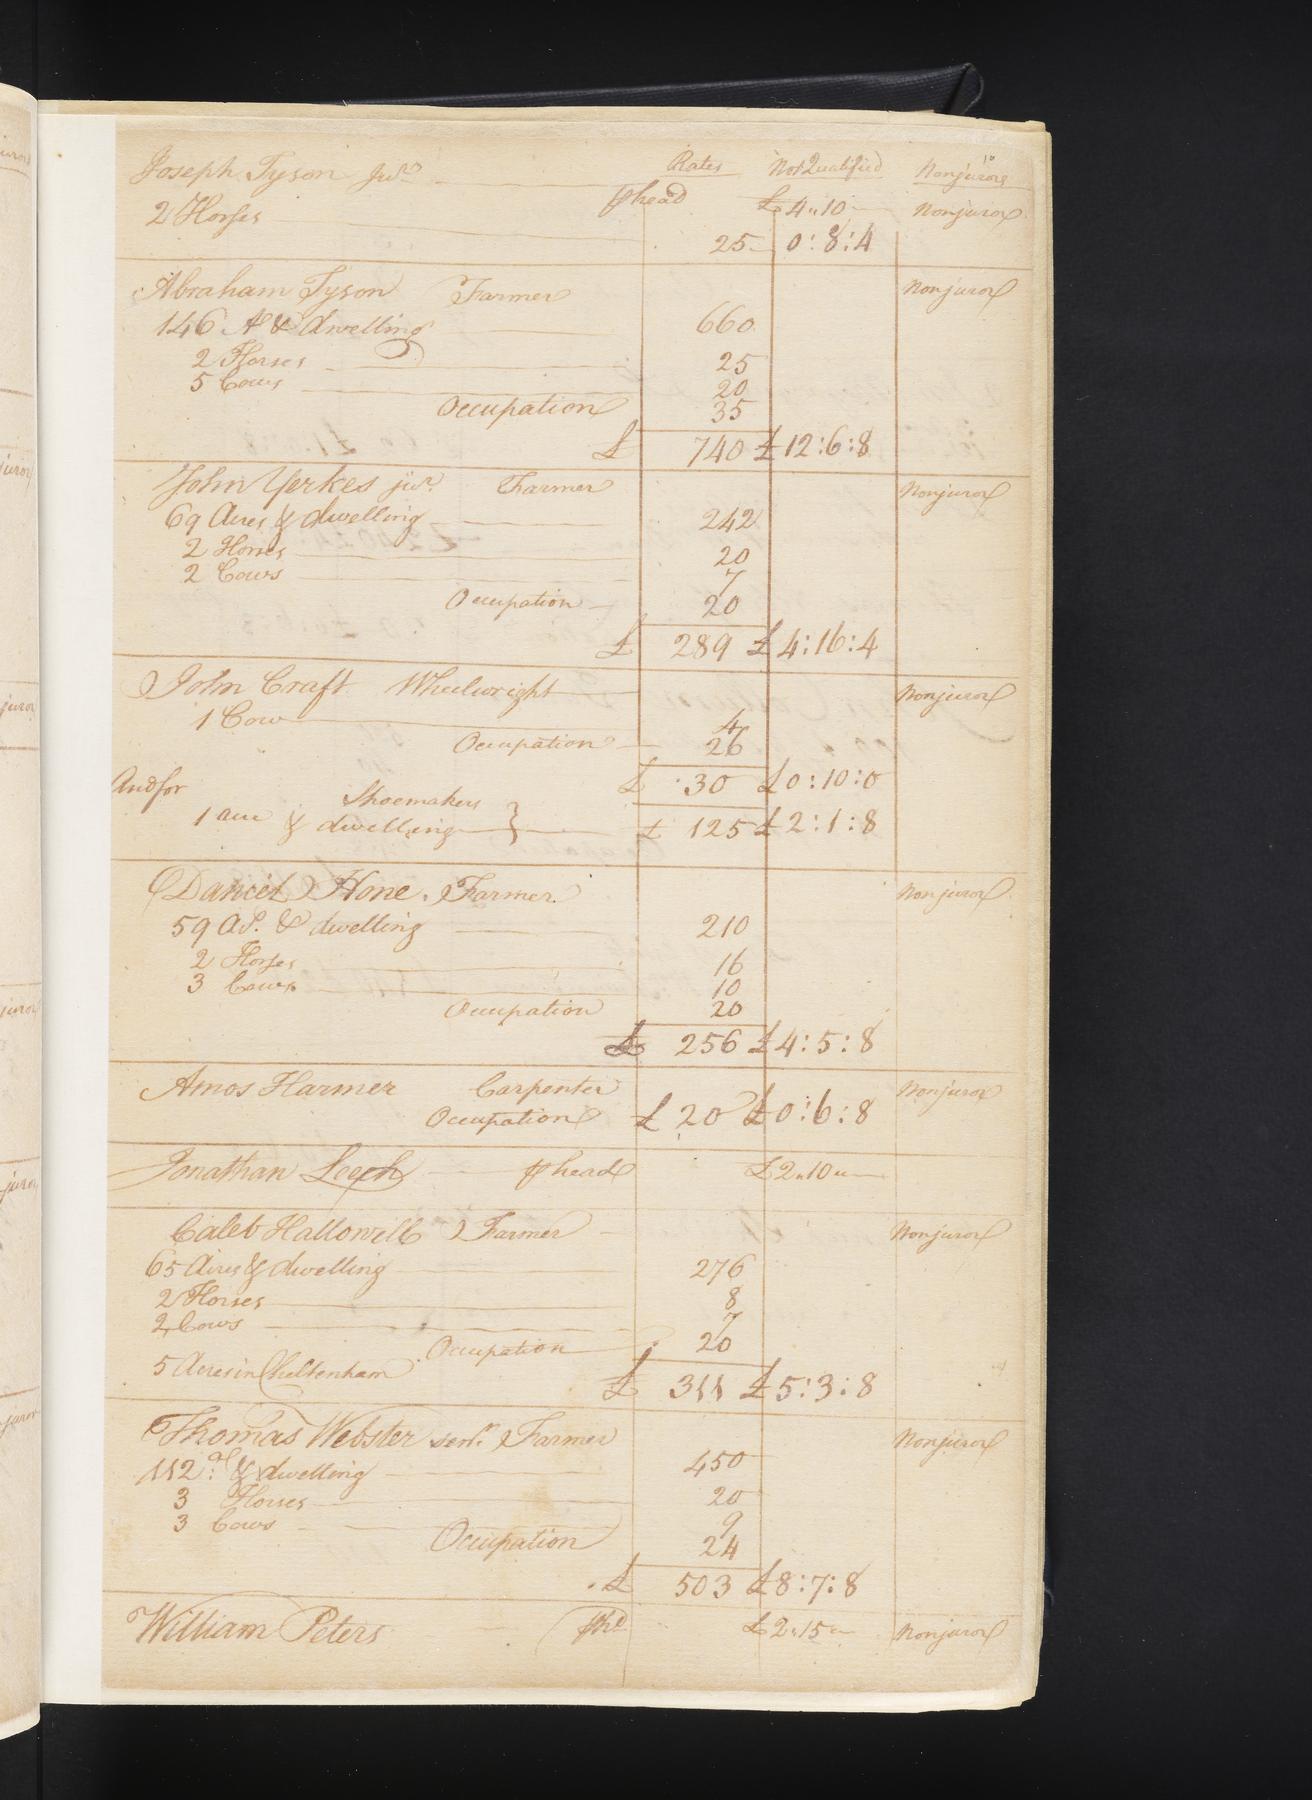 Rates Not Qualified Nonjurors
Joseph Tyson Junr. ⅌ head £4"10 Nonjuror
2 Horses 25 0:8:4
Abraham Tyson Farmer Nonjuror
146 As & dwelling 660
2 Horses 25
5 Cows 20
Occupation 35
£ 740 £12:6:8
John Yerkes junr. Farmer Nonjuror
69 Acres & dwelling 242
2 Horses 20
2 Cows 7
Occupation 20
£ 289 £4:16:4
John Craft Wheelwright Nonjuror
1 Cow 4
Occupation 26
£ 30 £0:10:0
And for Shoemakers
1 acre & dwelling } £ 125 £2:1:8
Daniel Hone Farmer Nonjuror
59 As. & dwelling 210
2 Horses 16
3 Cows 10
Occupation 20
£ 256 £4:5:8
Amos Harmer Carpenter Nonjuror
Occupation £ 20 £0:6:8
Jonathan Leech ⅌ head £2"10"
Caleb Hallowell Farmer Nonjuror
65 Acres & dwelling 276
2 Horses 8
2 Cows 7
Occupation 20
5 Acres in Cheltenham £ 311 £5:3:8
Thomas Webster senr. Farmer Nonjuror
112 a & dwelling 450
3 Horses 20
3 Cows 9
Occupation 24
£ 503 £8:7:8
William Peters ⅌ hd £2"15" Nonjuror